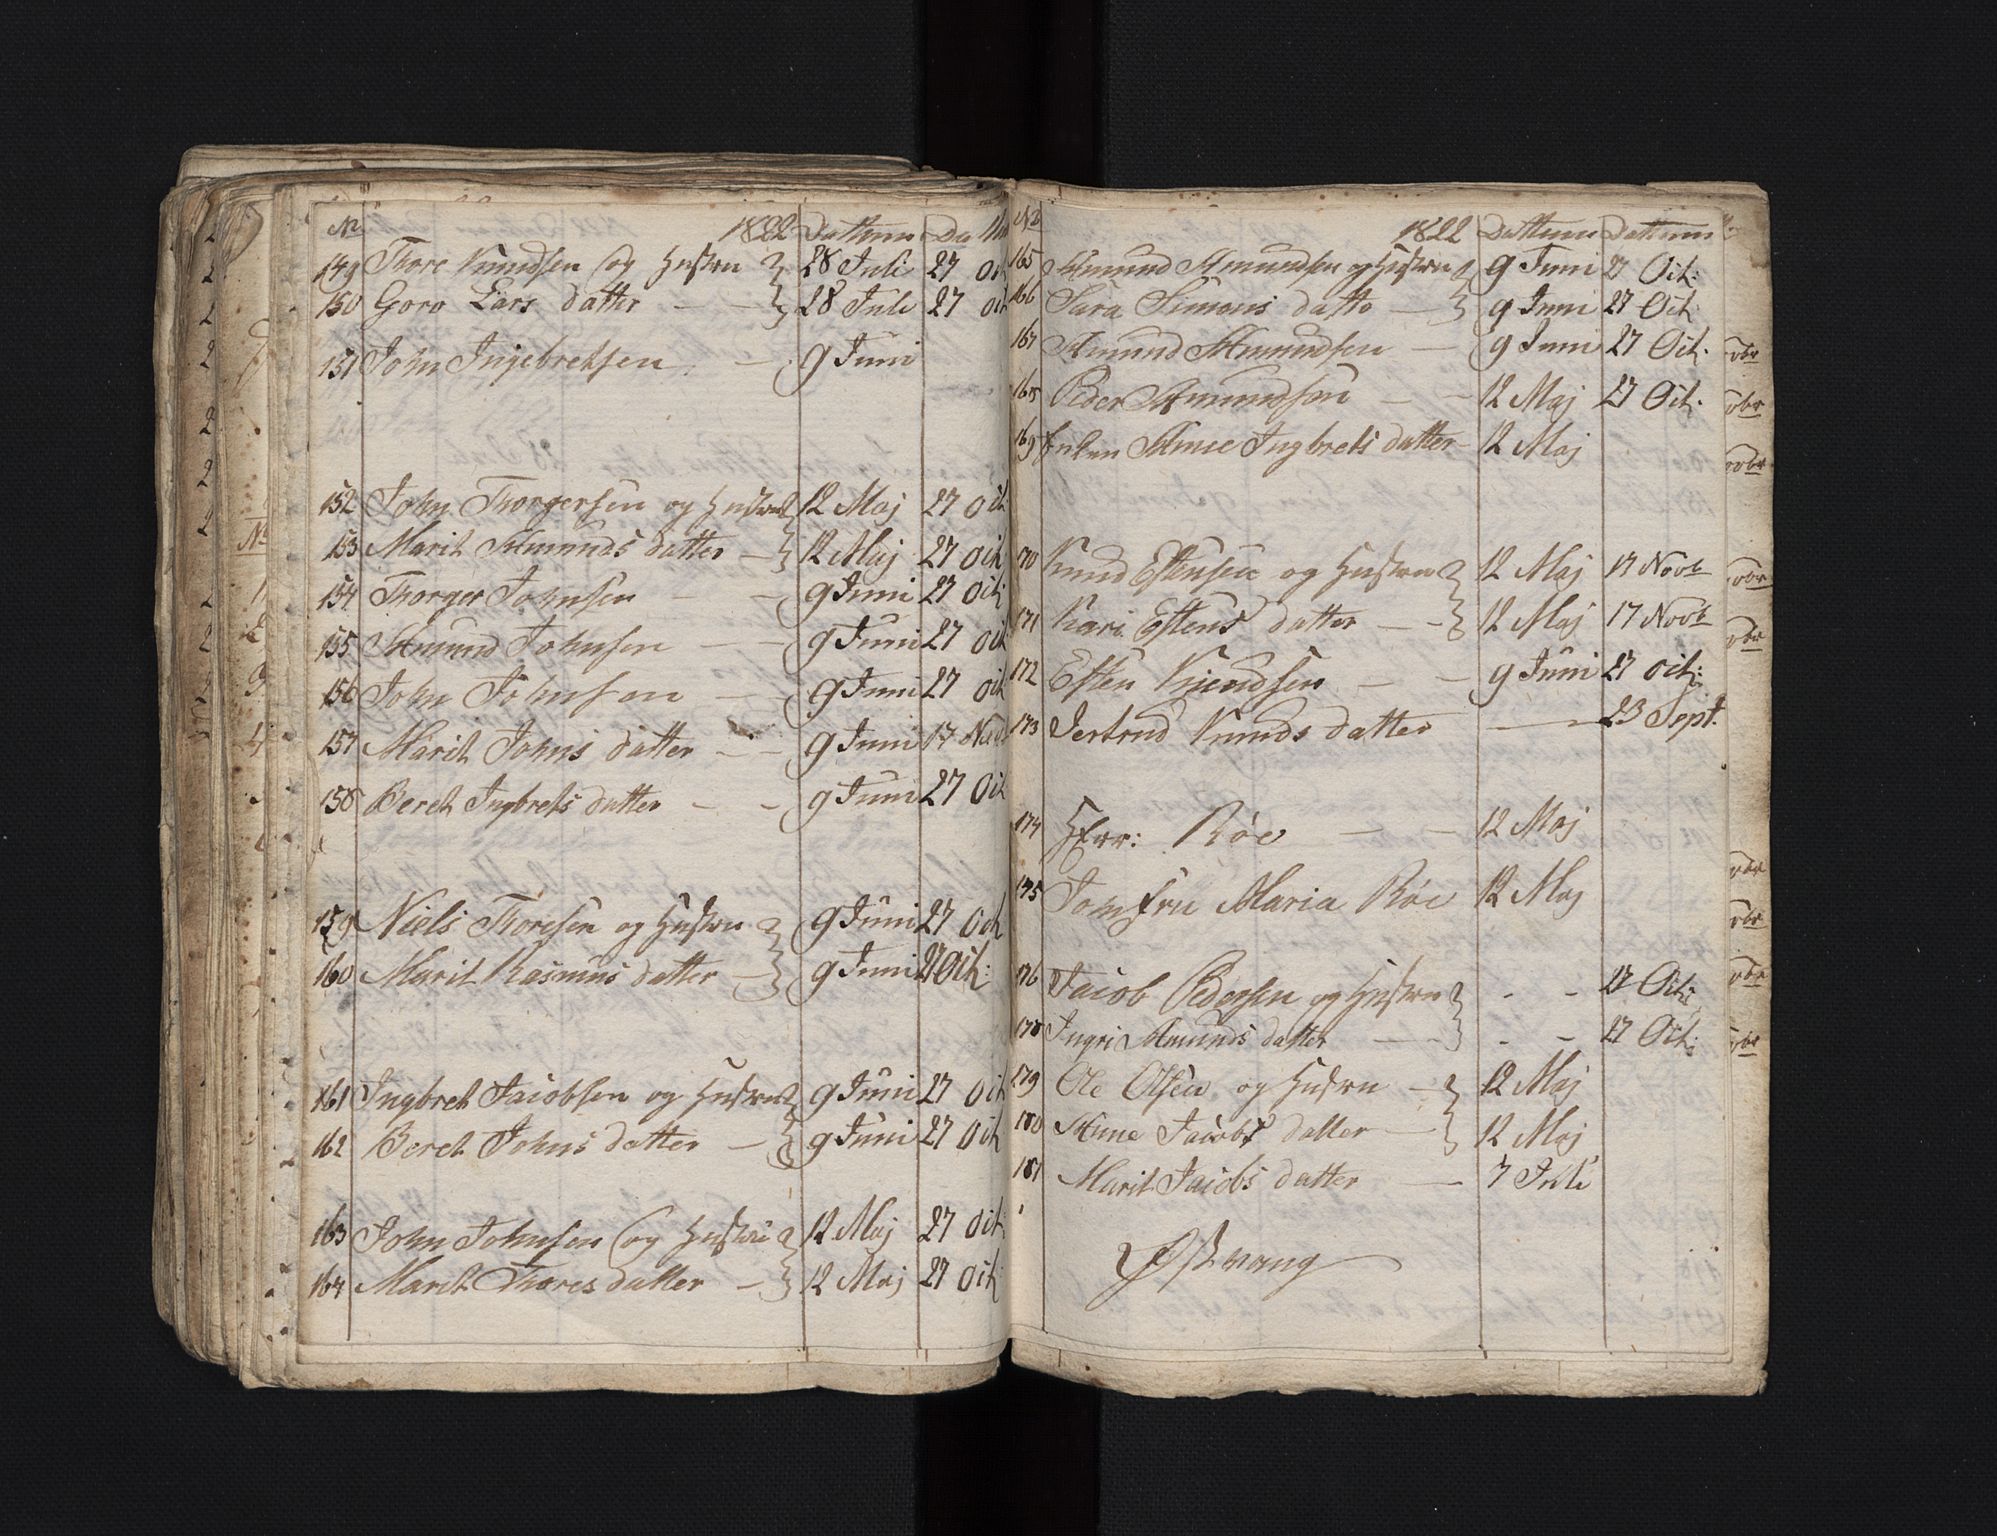 No 1822 Dattum Dattum
149 Thore Knudsen og Hustru 28 Juli 27 Oct
150 Goro Lars datter 28 Juli 27 Oct
151 John Ingebretsen 9 Juni
152 John Thorgersen og Hustru 12 Maj 27 Oct
153 Marit Amunds datter 12 Maj 27 Oct
154 Thorger Johnsen 9 Juni 27 Oct:
155 Amund Johnsen 9 Juni 27 Oct
156 John Johnsen 9 Juni 27 Oct
157 Marit Johns datter 9 Juni 17
158 Beret Ingbrets datter 9 Juni 27 Oct
159 Niels Thoresen og Hustru 9 Juni 27 Oct
160 Marit Rasmus datter 9 Juni 27 Oct:
161 Ingbret Jacobsen og Hustru 9 Juni 27 Oct
162 Beret Johns datter 9 Juni 27 Oct
163 John Johnsen og Hustru 12 Maj 27 Oct:
164 Marit Thores datter 12 Maj 27 Oct:
No 1822 Dattum Dattum
165 Amund Amundsen og Hustru 9 Juni 27 Oct:
166 Sara Simons datte 9 Juni 27 Oct:
167 Amund Amundsen 9 Juni 27 Oct:
168 Peder Amundsen 12 Maj 27 Oct:
169 Enken Anne Ingbrets datter 12 Maj
170 Knud Estensen og Hustru 12 Maj 17 Novb
171 Kari Estens datter 12 Maj 17 Novb
172 Esten Knudsen 9 Juni 27 Oct:
173 Jertrud Knuds datter 23 Sept.
174 Herr: Röe 12 Maj
175 Jomfru Maria Röe 12 Maj
176 Jacob Pedersen og Hustru 27 Oct:
178 Ingri Amunds datter 27 Oct:
179 Ole Olsen og Hustru 12 Maj
180 Anne Jacobs datter 12 Maj
181 Marit Jacobs datter 7 Juli
Østvang